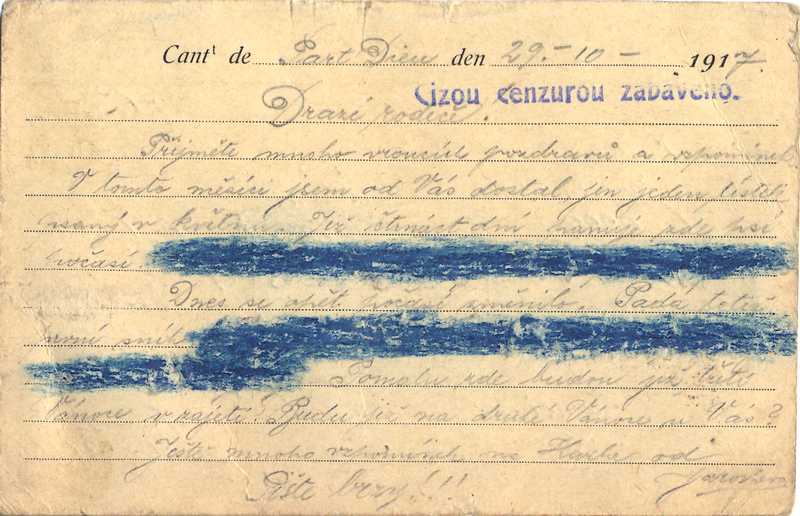 Cant^t de Part Dieu den 29.-10- 1917.
Cizou cenzurou zabaveno.
Drazí rodiče!
Přijměte mnoho vroucích pozdravů a vzpomínek.
V tomto měsíci jsem od Vás dostal jen jeden lístek
psaný v květnu. Již čtrnáct dní panují zde psí
počasí.
Dnes se opět počasí změnilo. Padá totiž
první sníh
Pomalu zde budou již třetí
Vánoce v zajetí! Budu již na druhé Vánoce u Vás?
Ještě mnoho vzpomínek na od
Jaroslava
Pište brzy!!!